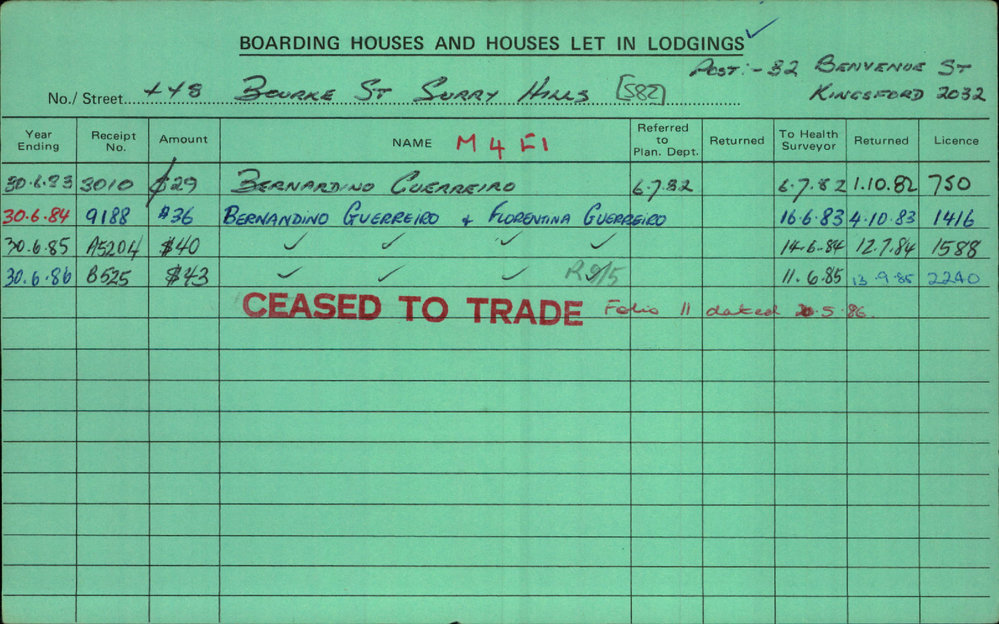 BOARDING HOUSES AND HOUSES LET IN LODGINGS ✓
POST:- 32 BENVENUE ST
KINGSFORD 2032
No./Street... 448 BOURKE ST SURRY HILLS [582]
Year Ending Receipt No. Amount NAME M 4 F1 Referred to Plan. Dept. Returned To Health Surveyor Returned Licence
30.6.83 3010 $29 BERNARDINO GUERREIRO 6.7.82 6.7.82 1.10.82 750
30.6.84 9188 $36 BERNANDINO GUERREIRO & FLORENTINA GUERREIRO 16.6.83 4.10.83 1416
30.6.85 A5204 $40 ✓ ✓ ✓ ✓ 14.6.84 12.7.84 1588
30.6.86 B525 $43 ✓ ✓ ✓ R9/5 11.6.85 13.9.85 2240
CEASED TO TRADE Folio 11 dated 20.5.86.